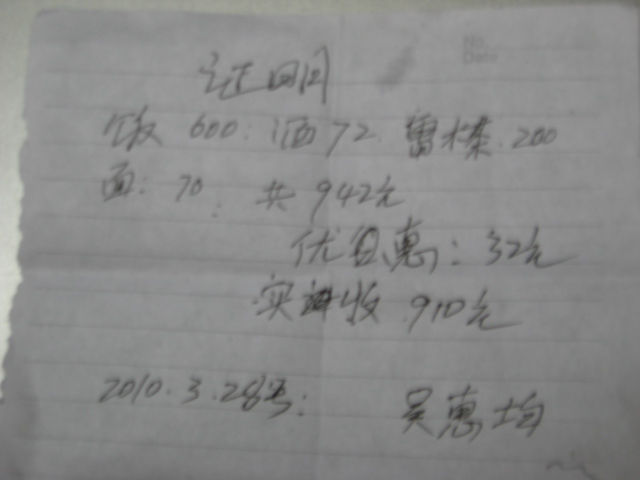 No.
Date
证明
饭 600: 酒72. 200
面: 70: 共942元
优惠: 32元
实收 910元
2010.3.28号: 吴惠均